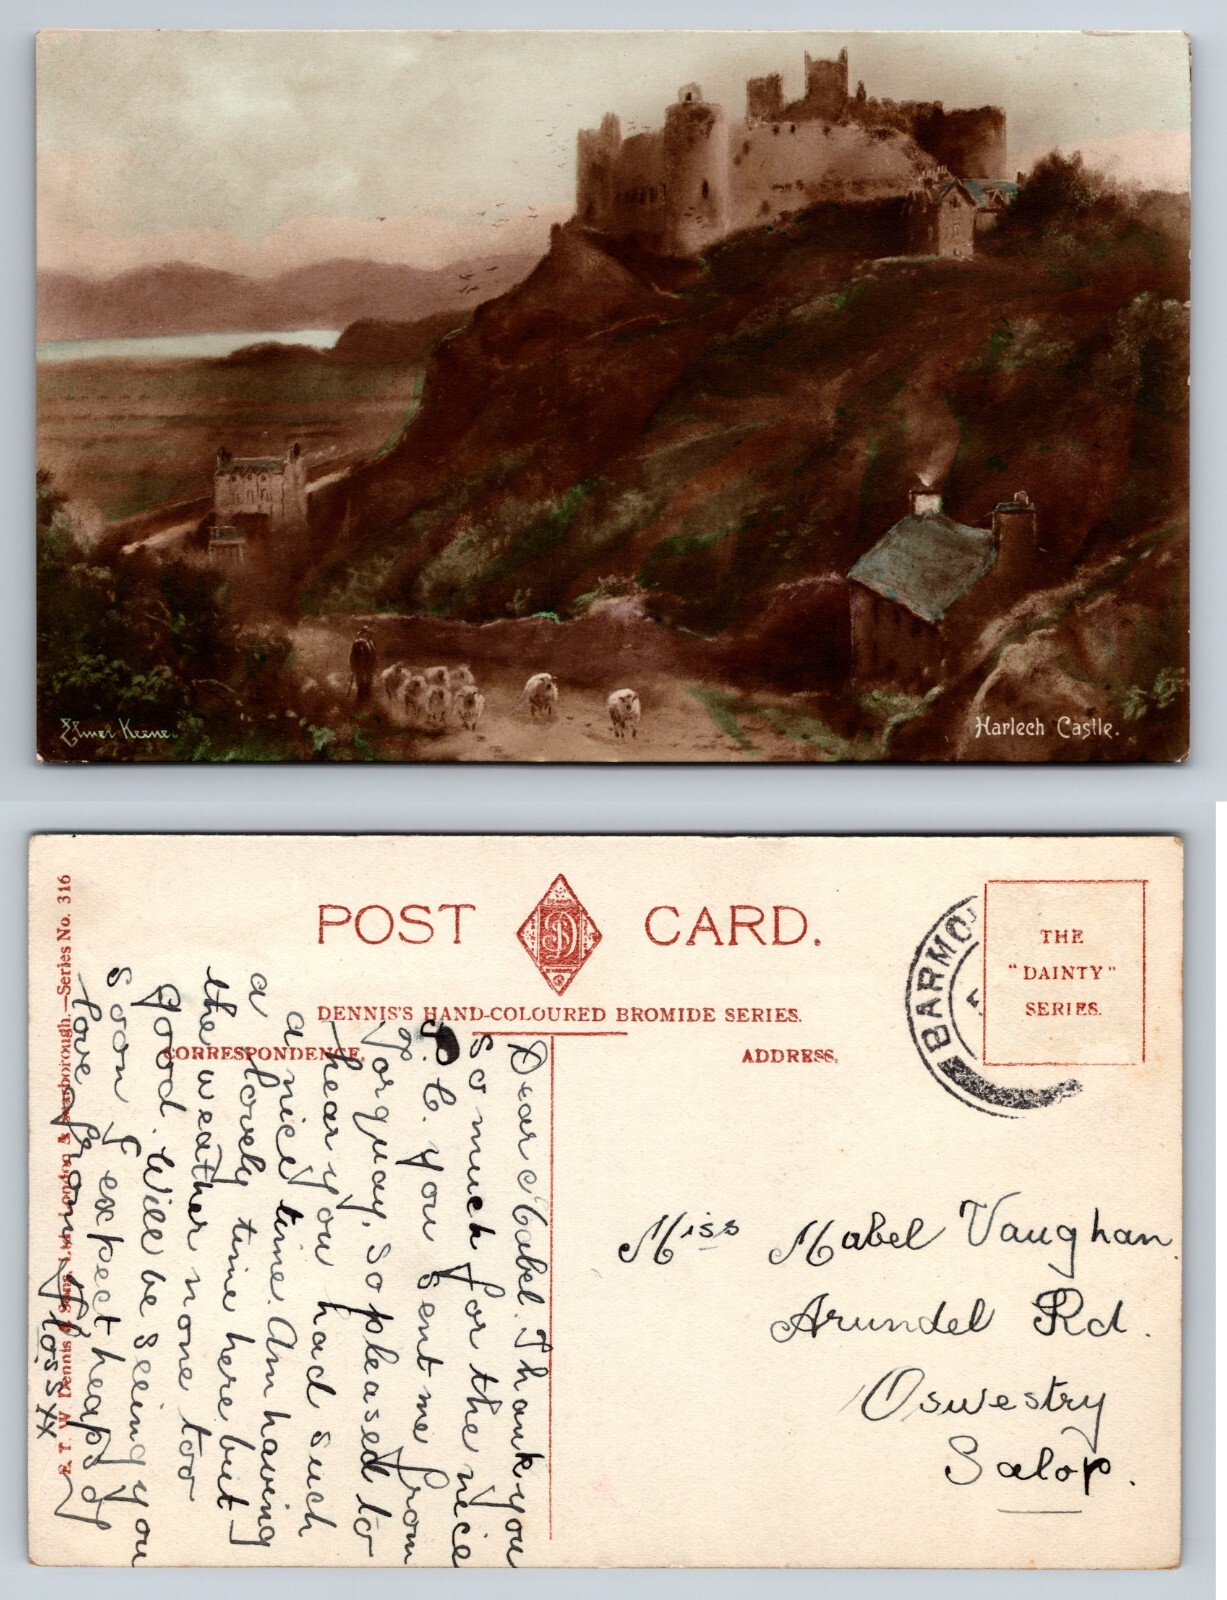 Elmer Keene.
Harlech Castle.
POST CARD.
DENNIS'S HAND-COLOURED BROMIDE SERIES.
CORRESPONDENCE.
ADDRESS.
THE
"DAINTY"
SERIES.
BARMO
E. T. W. Dennis & Sons, Ltd., London & Scarborough.—Series No. 316
Dear Mabel. Thank you
so much for the nice
P.C. you sent me from
Torquay, so pleased to
hear you had such
a nice time. Am having
a lovely time here but
the weather none too
good. Will be seeing you
soon I expect heaps of
love from
Floss xx
Miss Mabel Vaughan.
Arundel Rd.
Oswestry
Salop.